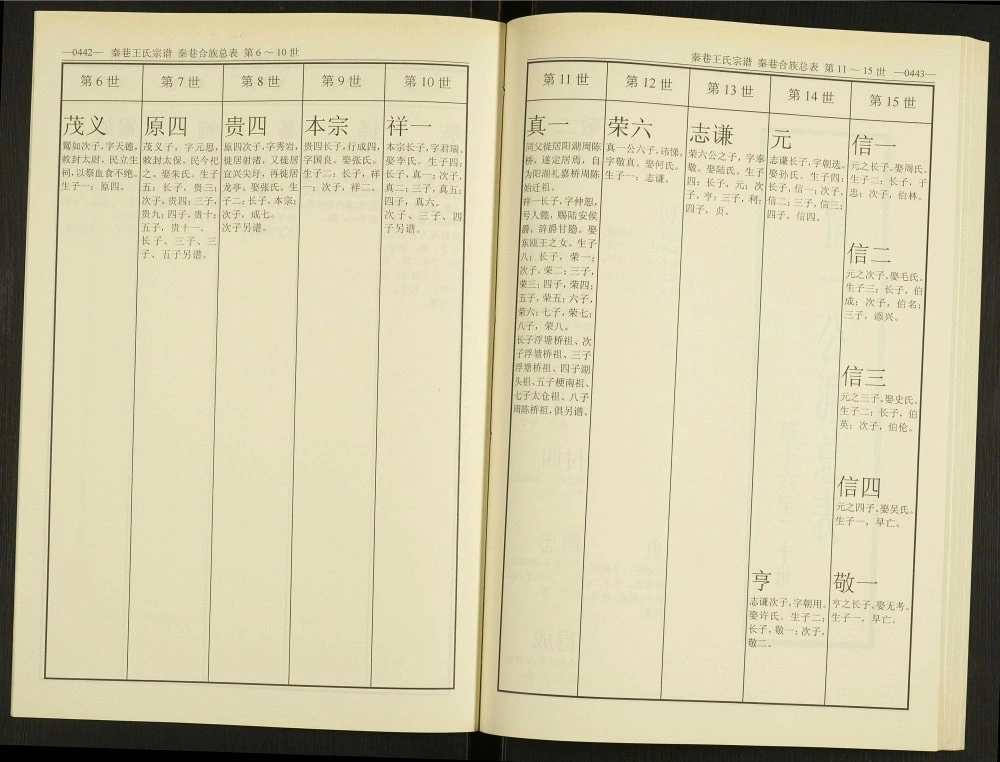 —0442— 秦巷王氏宗谱 秦巷合族总表 第6～10世
第6世
第7世
第8世
第9世
第10世
茂义
昺如次子，字天德，
敕封太尉，民立生
祠，以祭血食不绝。
生子一：原四。
原四
茂义子，字元恩，
敕封太保，民今祀
之。娶朱氏。生子
五：长子，贵三；
次子，贵四；三子，
贵九；四子，贵十；
五子，贵十一。
长子、三子、三
子、五子另谱。
贵四
原四次子，字秀岩，
徙居射渚，又徙居
宜兴尖圩，再徙居
龙亭。娶张氏。生
子二：长子，本宗；
次子，成七。
次子另谱。
本宗
贵四长子，行成四，
字国良。娶张氏。
生子二：长子，祥
一；次子，祥二。
祥一
本宗长子，字君瑞。
娶李氏。生子四：
长子，真一；次子，
真二；三子，真五；
四子，真六。
次子、三子、四
子另谱。
秦巷王氏宗谱 秦巷合族总表 第11～15世 —0443—
第11世
第12世
第13世
第14世
第15世
真一
同父徙居阳湖周陈
桥，遂定居焉，自
为阳湖礼嘉桥周陈
始迁祖。
祥一长子，字仲恕，
号人懿，赐陆安侯
爵，辞爵甘隐。娶
东瓯王之女。生子
八：长子，荣一；
次子，荣二；三子，
荣三；四子，荣四；
五子，荣五；六子，
荣六；七子，荣七；
八子，荣八。
长子浮塘桥祖、次
子浮塘桥祖、三子
浮塘桥祖、四子湖
头祖、五子梗南祖、
七子太仓祖、八子
周陈桥祖，俱另谱。
荣六
真一公六子，讳悌，
字敬真。娶何氏。
生子一：志谦。
志谦
荣六公之子，字奉
敬。娶陆氏。生子
四：长子，元；次
子，亨；三子，利；
四子，贞。
元
志谦长子，字朝选。
娶孙氏。生子四：
长子，信一；次子，
信二；三子，信三；
四子，信四。
信一
元之长子，娶周氏。
生子二：长子，子
忠；次子，伯林。
信二
元之次子，娶毛氏。
生子三：长子，伯
成；次子，伯名；
三子，添兴。
信三
元之三子，娶史氏。
生子二：长子，伯
英；次子，伯伦。
信四
元之四子，娶吴氏。
生子一，早亡。
亨
志谦次子，字朝用。
娶许氏。生子二：
长子，敬一；次子，
敬二。
敬一
亨之长子，娶无考。
生子一，早亡。